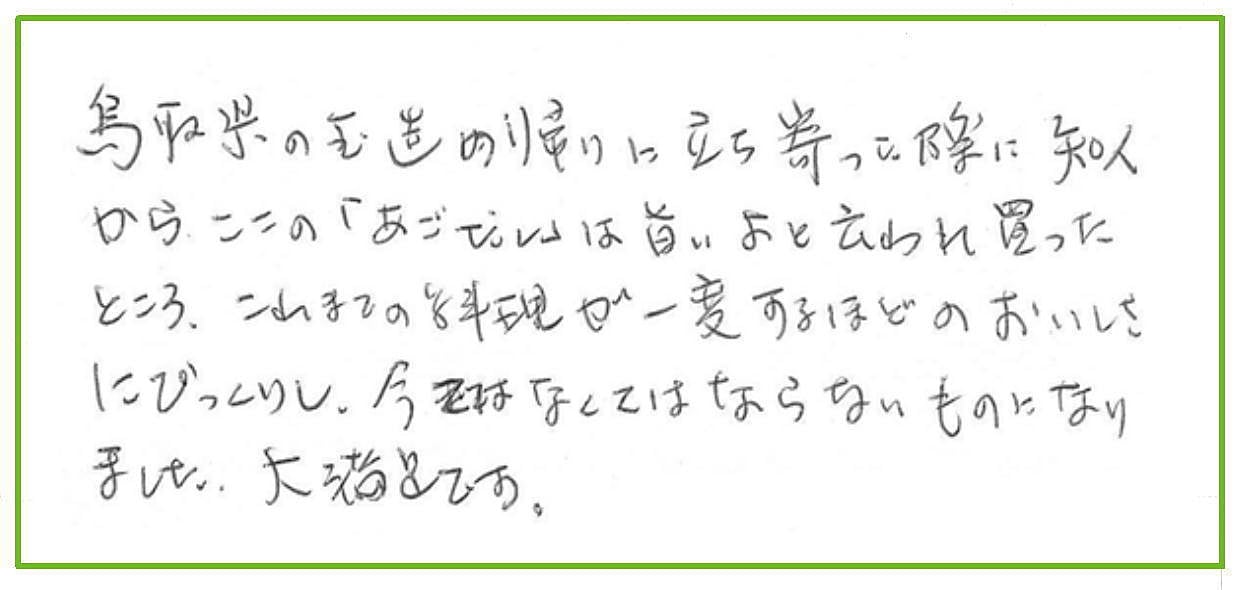 鳥取県の玉造の帰りに立ち寄った際に知人
から ここの「あごだし」は旨いよと云われ買った
ところ、これまでの料理が一変するほどのおいしさ
にびっくりし、今ではなくてはならないものになり
ました。大満足です。